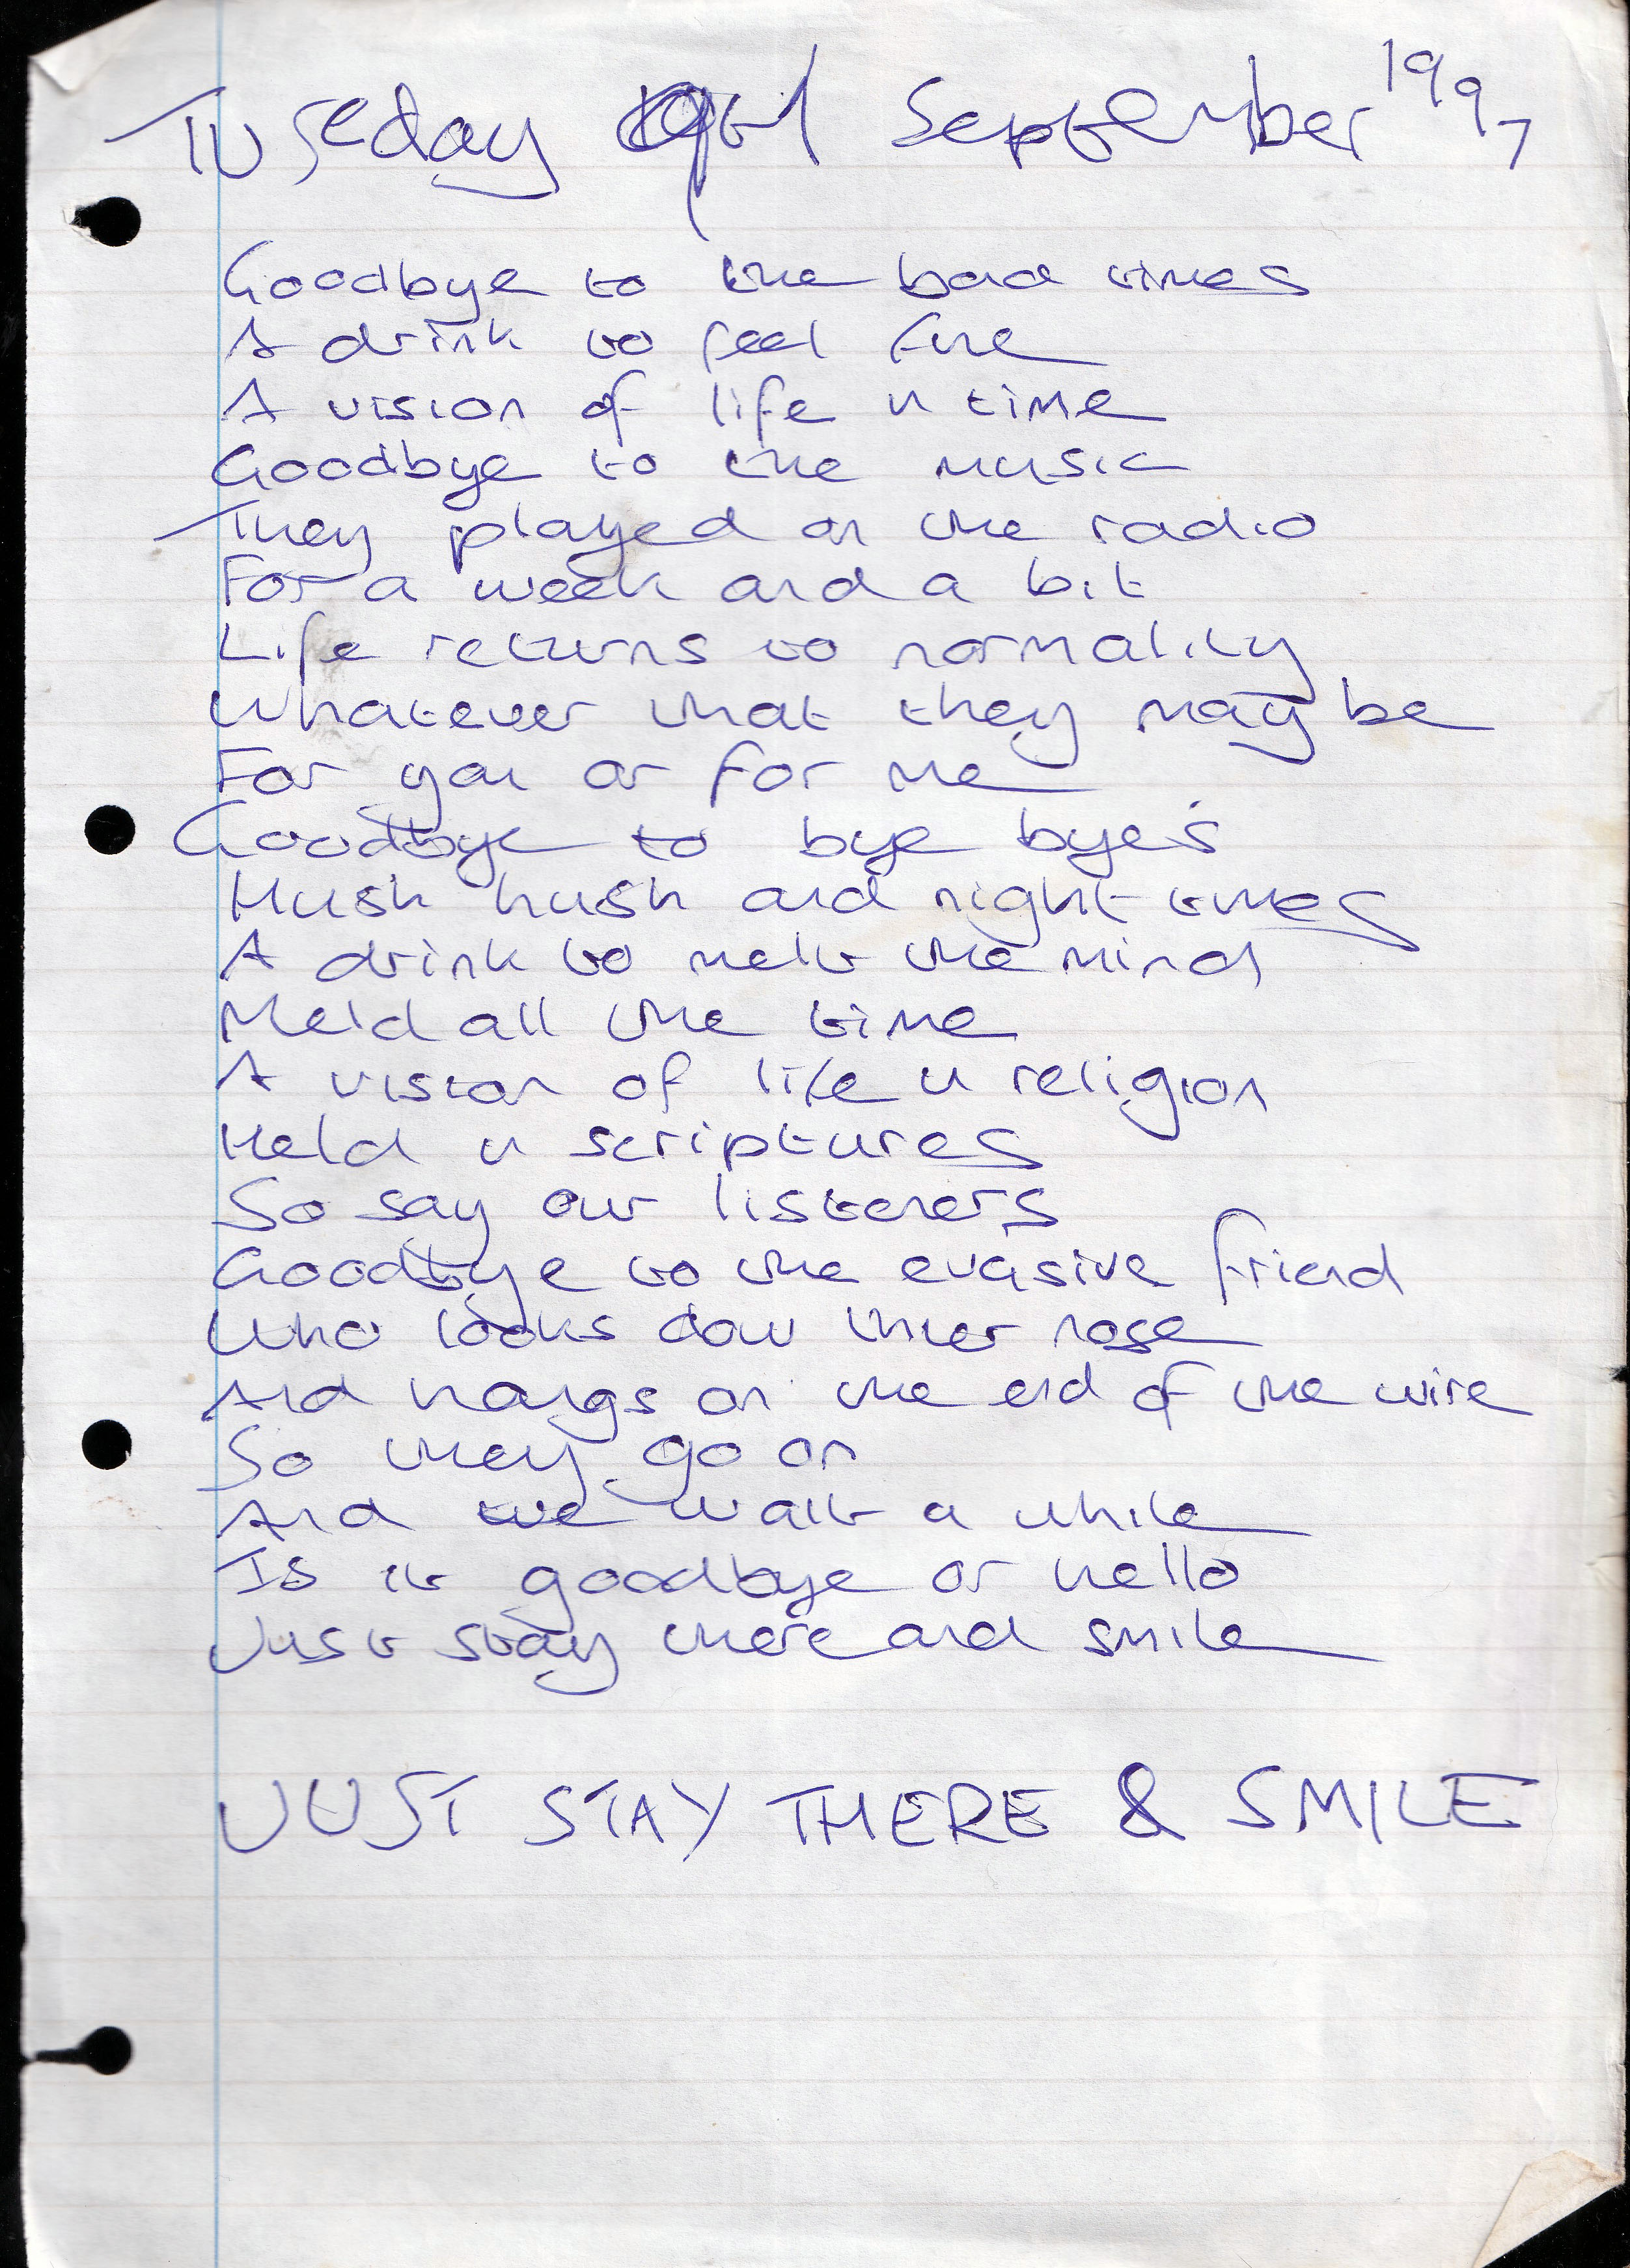 Tuesday 9th September 1997
Goodbye to the bad times
A drink to feel fine
A vision of life in time
Goodbye to the music
They played on the radio
For a week and a bit
Life returns to normality
Whatever that they may be
For you or for me
Goodbye to bye bye's
Hush hush and night times
A drink to melt the mind
Meld all the time
A vision of life in religion
Held in scriptures
So say our listeners
Goodbye to the evasive friend
Who looks down their nose
And hangs on the end of the wire
So they go on
And we wait a while
Is it goodbye or hello
Just stay there and smile
JUST STAY THERE & SMILE